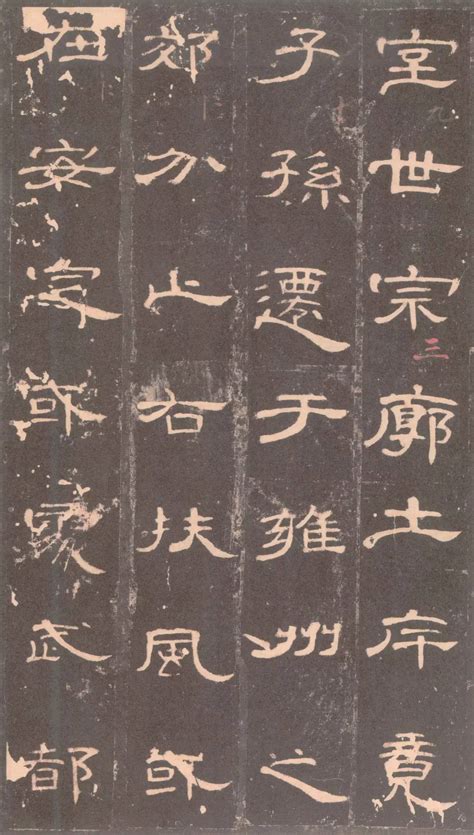 室世宗廓土斥竟
三
子孫遷于雍州之
郊分止右扶風或
在安定或處武都